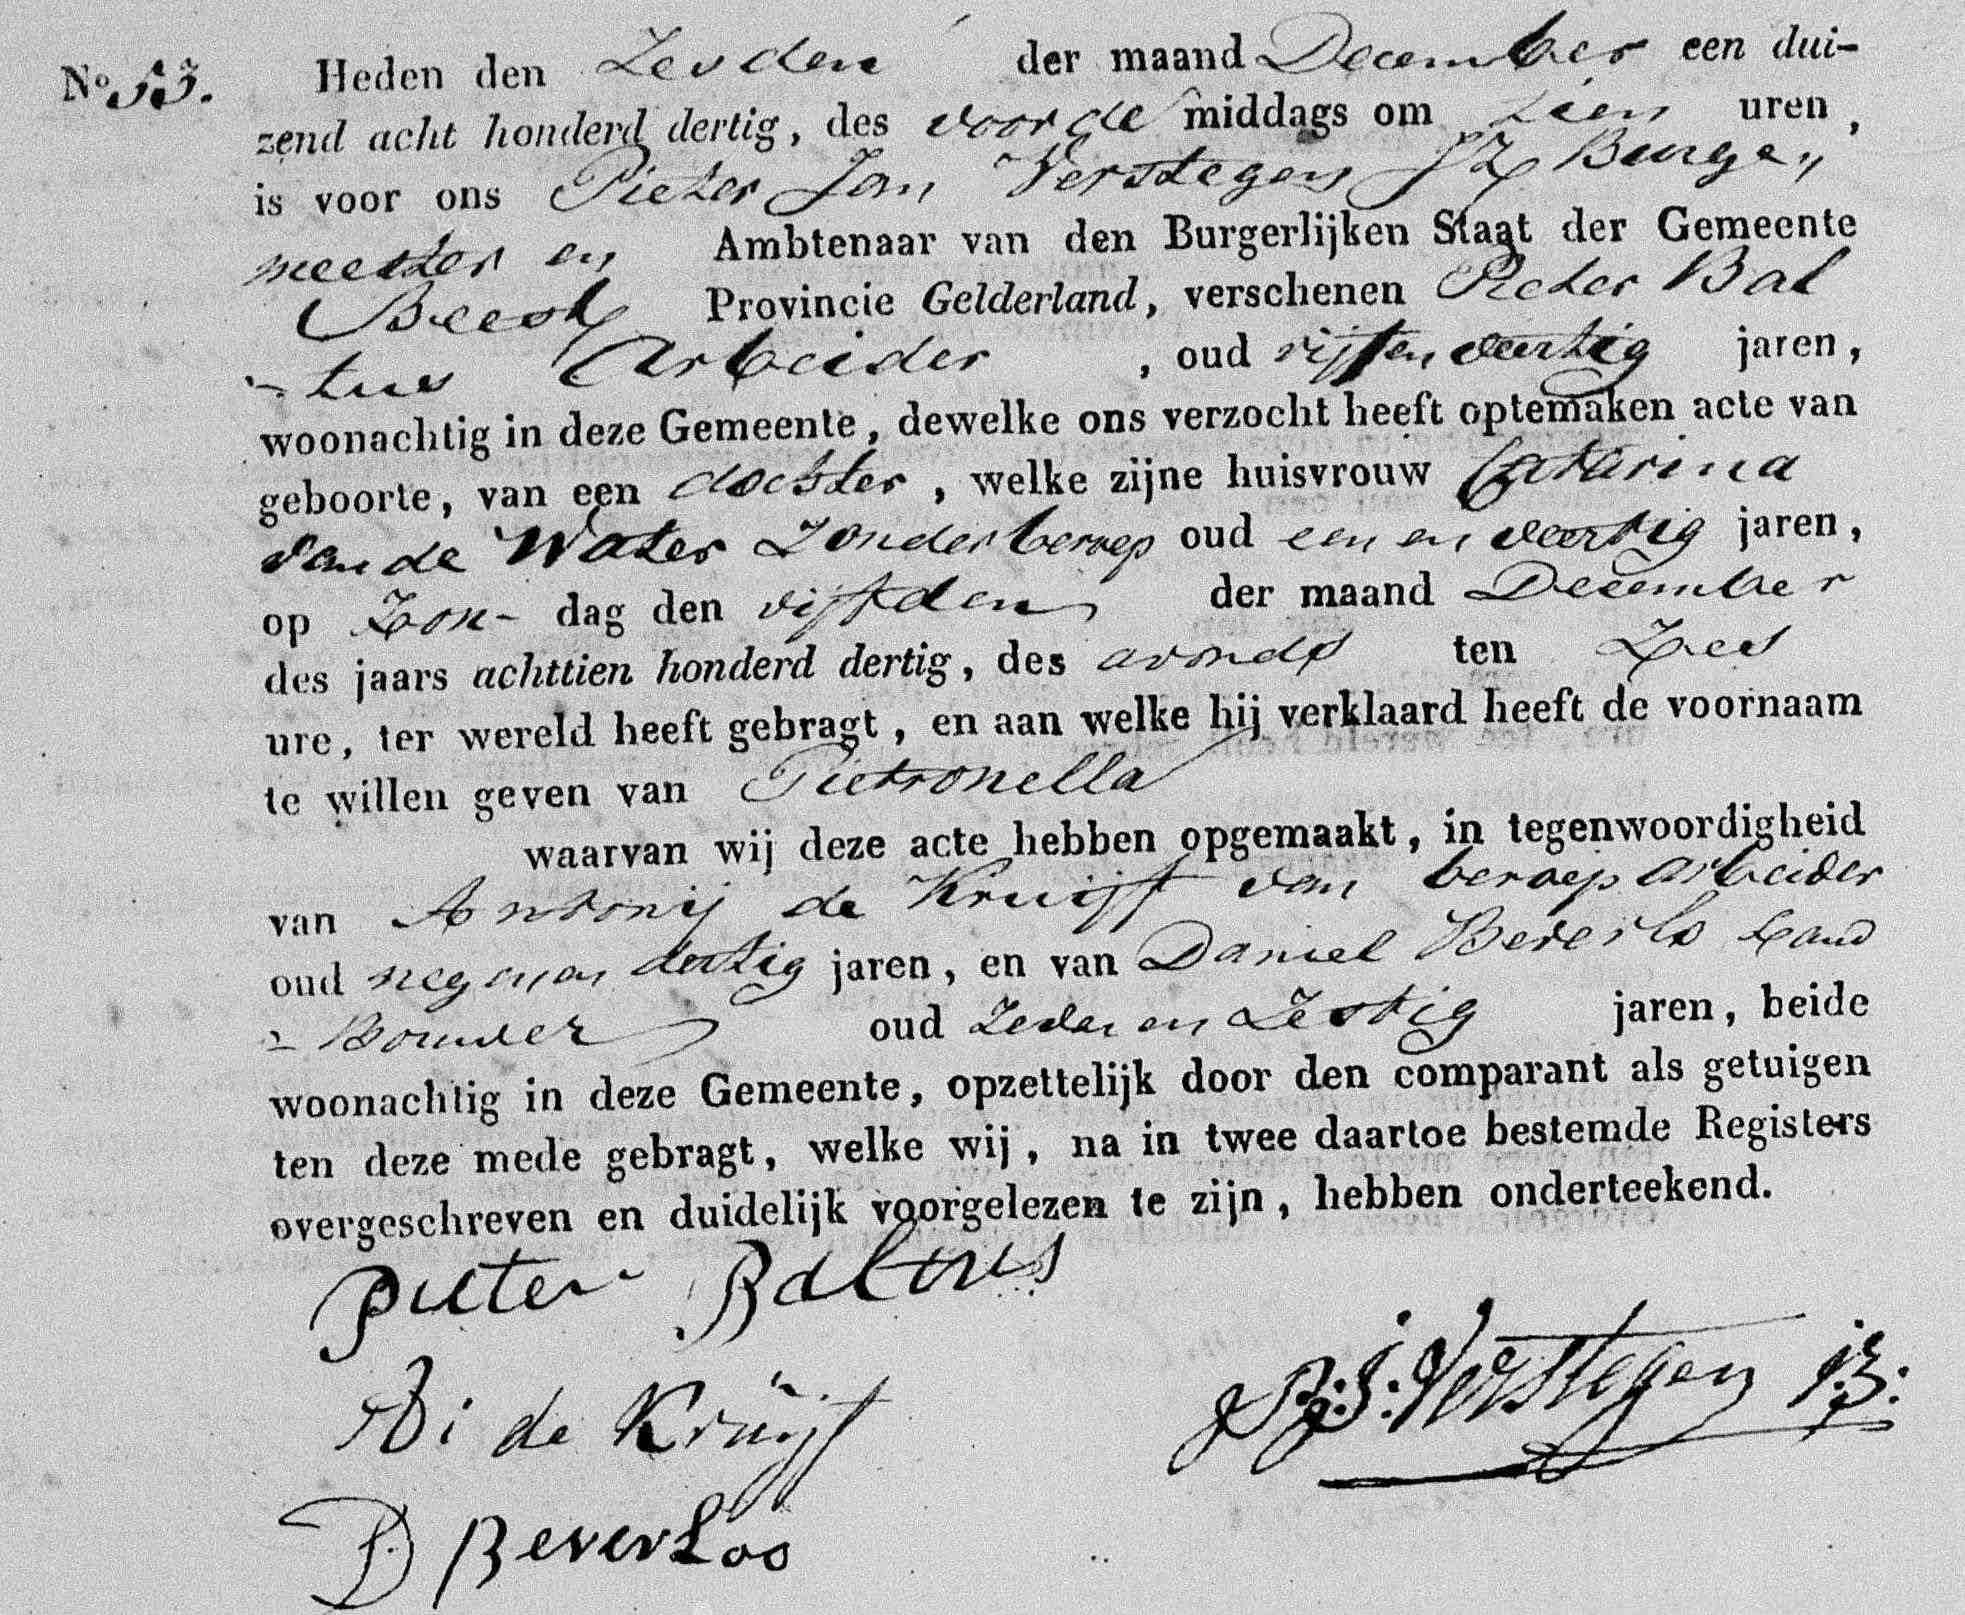 No 53. Heden den Zesden der maand December een dui-
zend acht honderd dertig, des voorde middags om tien uren,
is voor ons Pieter Jan Verstegen JZ Burge„
meester en Ambtenaar van den Burgerlijken Staat der Gemeente
Beest Provincie Gelderland, verschenen Pieter Bal
-tus Arbeider, oud vijf en veertig jaren,
woonachtig in deze Gemeente, dewelke ons verzocht heeft optemaken acte van
geboorte, van een dochter, welke zijne huisvrouw Catarina
van de Water Zonder beroep oud een en veertig jaren,
op Zon- dag den vijfden der maand December
des jaars achttien honderd dertig, des avonds ten Zes
ure, ter wereld heeft gebragt, en aan welke hij verklaard heeft de voornaam
te willen geven van Pietronella
waarvan wij deze acte hebben opgemaakt, in tegenwoordigheid
van Antonij de Kruijf van beroep arbeider
oud negen en dertig jaren, en van Daniel Beverlo Land
-Bouwer oud Zeven en Zestig jaren, beide
woonachtig in deze Gemeente, opzettelijk door den comparant als getuigen
ten deze mede gebragt, welke wij, na in twee daartoe bestemde Registers
overgeschreven en duidelijk voorgelezen te zijn, hebben onderteekend.
Pieter Baltus
P:J: Verstegen JZ:
A de Kruijf
D Beverloo